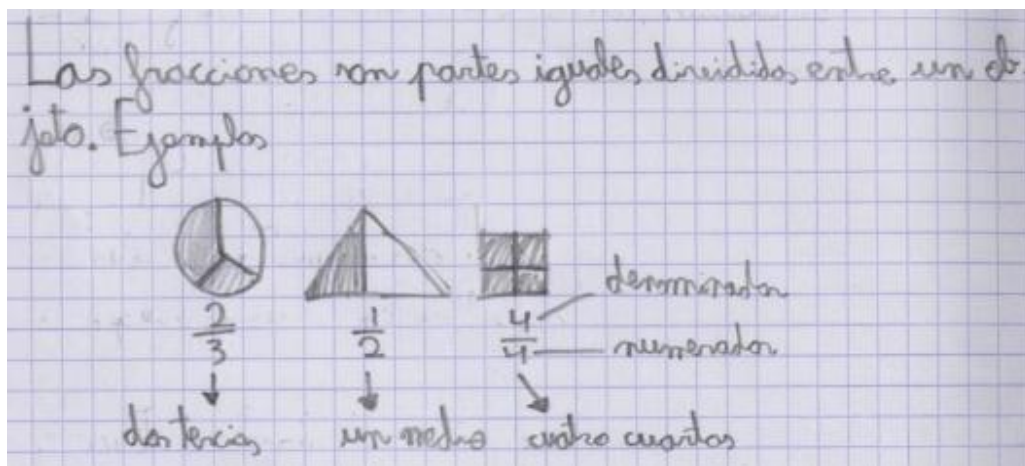 Las fracciones son partes iguales divididas entre un ob
jeto. Ejemplos
2/3 1/2 4/4 denominador
numerador
dos tercios un medio cuatro cuartos